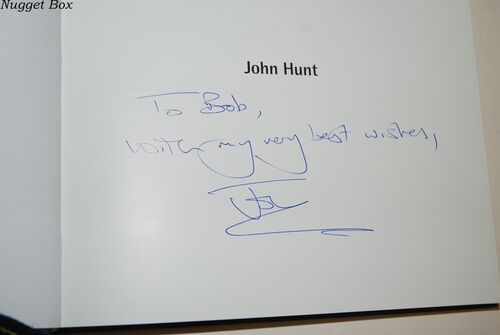 Nugget Box
John Hunt
To Bob,
With my very best wishes,